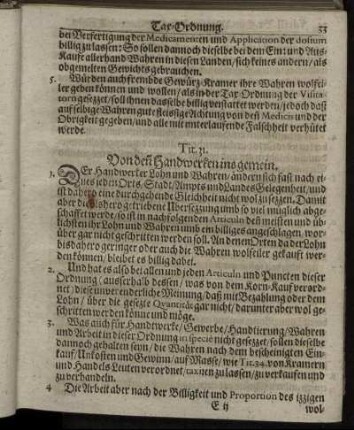 Tax-Ordnung. 33
bey Verfertigung der Medicamenten und Application der dosium
billig zu lassen: So sollen dannoch dieselbe bei dem Ein: und Aus-
Kauffe allerhand Wahren in diesen Landen / sich keines andern / als
obgemelten Gewichts gebrauchen.
5. Würden auch frembde Gewürtz-Kramer ihre Wahren wolfei-
ler geben können und wollen / als in der Tax-Ordnung der Visita-
torn gesetzet / soll ihnen dasselbe billig verstattet werden / jedoch daß
auf selbige Wahren gute fleissige Achtung von deß Medicis und der
Obrigkeit gegeben / und alle mit unterlauffende Falschheit verhütet
werde.
Tit. 31.
Von den Handwerken ins gemein.
1. DEr Handwerker Lohn und Wahren / ändern sich fast nach ei-
nes jeden Orts, Stadt / Ampts und Landes Gelegenheit / und
ist dahero eine durchgehende Gleichheit nicht wol zusetzen. Damit
aber die bishero getriebene Ubersetzung umb so viel müglich abge-
schaffet werde / so ist in nachfolgenden Articuln des meisten und üb-
lichsten ihr Lohn und Wahren umb ein billiges angeschlagen, wor-
über gar nicht geschritten werden soll. An denen Orten da der Lohn
bis dahero geringer oder auch die Wahren wolfeiler gekauft wer-
den können / bleibet es billig dabei.
2. Und hat es also bei allen und jeden Articuln und Puncten dieser
Ordnung / (ausserhalb dessen / was von dem Korn-Kauf verord-
net / ) diese unveränderliche Meinung / daß mit Bezahlung oder dem
Lohn / über die gesetzte Quantität gar nicht / darunter aber wol ge-
schritten werden könne und möge.
3. Was auch für Handwerke / Gewerbe / Handtierung / Wahren
und Arbeit in dieser Ordnung in specie nicht gesetzet / sollen dieselbe
dannoch gehalten seyn / die Wahren nach dem bescheinigten Ein-
kauf / Unkosten und Gewinn auf Masse / wie Tit. 34. von Kramern
und Handels Leuten verordnet / taxiren zu lassen / zu verkauffen und
zu verhandeln.
4 Die Arbeit aber nach der Billigkeit und Proportion des itzigen
E ij wol-